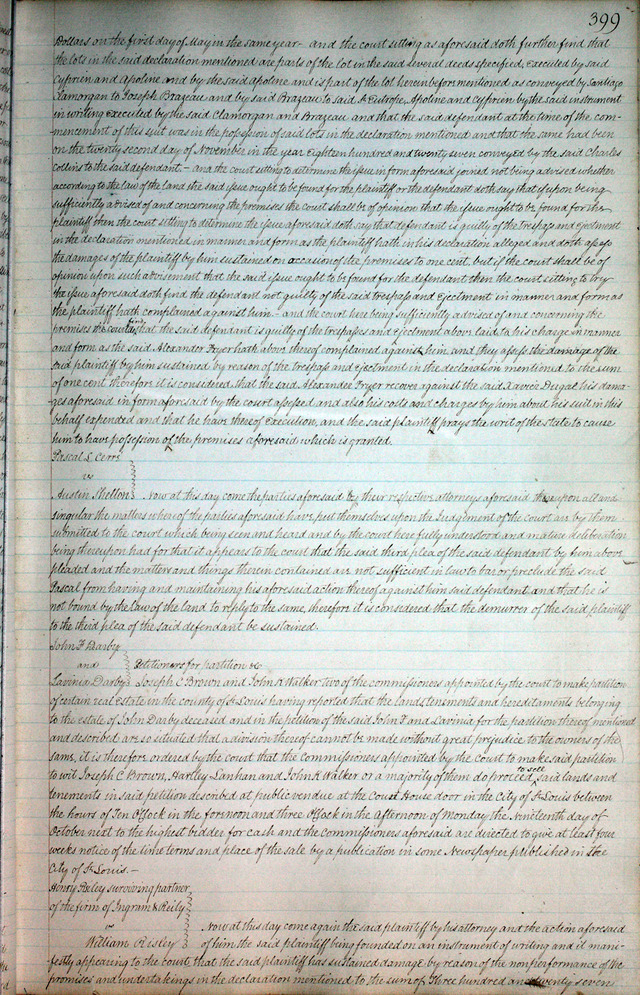 399
Dollars on the first day of May in the same year - and the court sitting as aforesaid doth further find that
the lots in the said declaration mentioned are parts of the lot in the said several deeds specified, executed by said
Cyprien and Apoline and by the said Apoline and is part of the lot herein before mentioned as conveyed by Santiago
Clamorgan to Joseph Brazeau and by said Brazeau to said St Eutrope, Apoline and Cyprien by the said instrument
in writing executed by the said Clamorgan and Brazeau and that the said defendant at the time of the com-
mencement of this suit was in the possession of said lots in the declaration mentioned and that the same had been
on the twenty second day of November in the year Eighteen hundred and twenty seven conveyed by the said Charles
Collins to the said defendant. - and the court sitting to determine the issue in form aforesaid joined not being advised whether
according to the law of the land the said issue ought to be found for the plaintiff or the defendant doth say that if upon being
sufficiently advised of and concerning the premises the court shall be of opinion that the issue ought to be found for the
plaintiff then the court sitting to determine the issue aforesaid doth say that defendant is guilty of the trespass and ejectment
in the declaration mentioned in manner and form as the plaintiff hath in his declaration alleged and doth assess
the damages of the plaintiff by him sustained on occasion of the premises to one cent. but if the court shall be of
opinion upon such advisement that the said issue ought to be found for the defendant then the court sitting to try
the issue aforesaid doth find the defendant not guilty of the said trespass and Ejectment in manner and form as
the plaintiff hath complained against him. - and the court here being sufficiently advised of and concerning the
premises the court find that the said defendant is guilty of the trespasses and ejectment above laid to his charge in manner
and form as the said Alexander Fryer hath above thereof complained against him and they assess the damage of the
said plaintiff by him sustained by reason of the trespass and ejectment in the declaration mentioned to the sum
of one cent therefore it is considered that the said Alexander Fryer recover against the said Xavier Dugal his dama-
ges aforesaid in form aforesaid by the court assessed and also his costs and charges by him about his suit in this
behalf expended and that he have thereof Execution, and the said plaintiff prays the writ of the state to cause
him to have possession of the premises aforesaid which is granted.
Pascal L Cerré
vs
Austin Shelton Now at this day come the parties aforesaid by their respective attorneys aforesaid thereupon all and
singular the matters wherof the parties aforesaid have put themselves upon the Judgement of the court are by them
submitted to the court which being seen and heard and by the court here fully understood and mature deliberation
being thereupon had for that it appears to the court that the said third plea of the said defendant by him above
pleaded and the matters and things therein contained are not sufficient in law to bar or preclude the said
Pascal from having and maintaining his aforesaid action thereof against him said defendant and that he is
not bound by the Law of the land to reply to the same, therefore it is considered that the demurrer of the said plaintiff
to the third plea of the said defendant be sustained.
John F Darby
and Petitioners for partition &c
Lavinia Darby Joseph C Brown and John K Walker two of the commissioners appointed by the court to make partition
of certain real estate in the county of St Louis having reported that the lands tenements and hereditaments belonging
to the estate of John Darby deceased and in the petition of the said John F and Lavinia for the partition thereof mentioned
and described are so situated that a division thereof cannot be made without great prejudice to the owners of the
same, it is therefore ordered by the court that the commissioners appointed by the Court to make said partition
to wit Joseph C Brown, Hartley Lanhan and John K Walker or a majority of them do proceed to sell said lands and
tenements in said petition described at public vendue at the Court House door in the City of St Louis between
the hours of Ten O'Clock in the forenoon and three O'Clock in the afternoon of Monday the Nineteenth day of
October next to the highest bidder for cash and the Commissioners aforesaid are directed to give at least four
weeks notice of the time terms and place of the sale by a publication in some Newspaper published in the
City of St Louis. -
Henry Reiley surviving partner
of the firm of Ingram & Reily
vs Now at this day come again the said plaintiff by his attorney and the action aforesaid
William Risley of him the said plaintiff being founded on an instrument of writing and it mani-
festly appearing to the court, that the said plaintiff has sustained damage by reason of the nonperformance of the
promises and undertakings in the declaration mentioned to the sum of three hundred and twenty seven